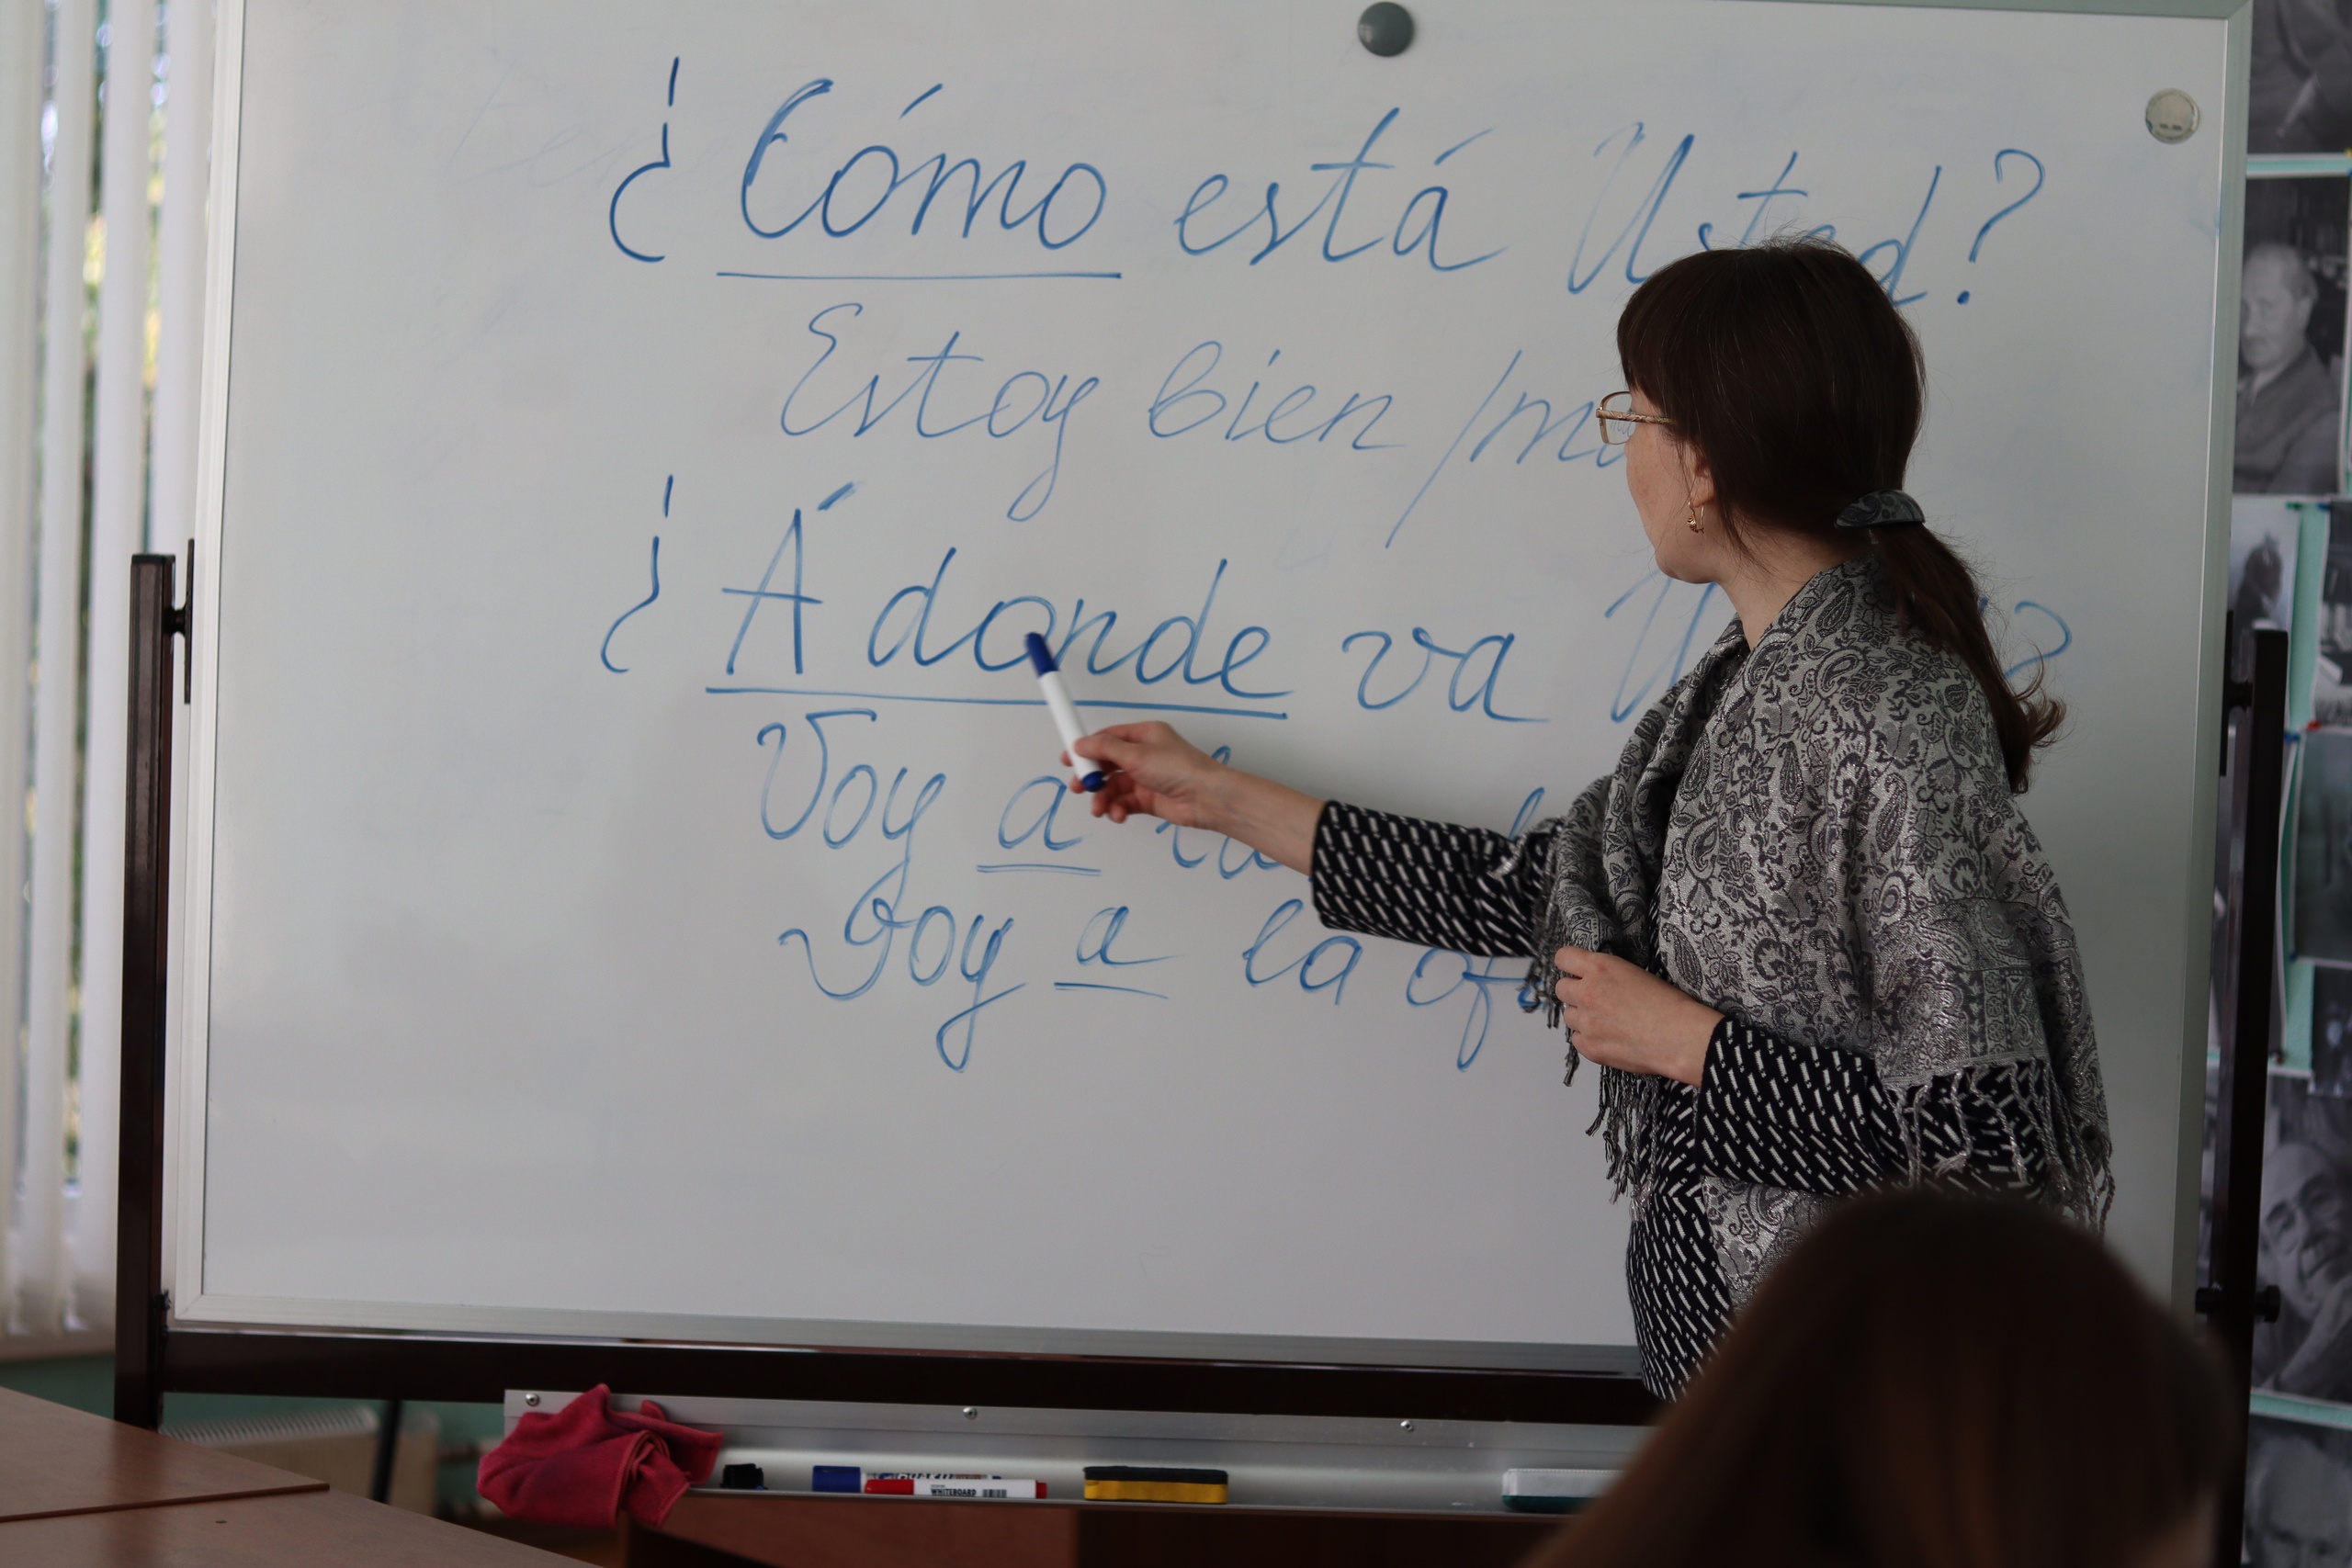 ¿Cómo está Usted?
Estoy bien /
¿Á donde va
Voy a
Voy a la
WHITEBOARD